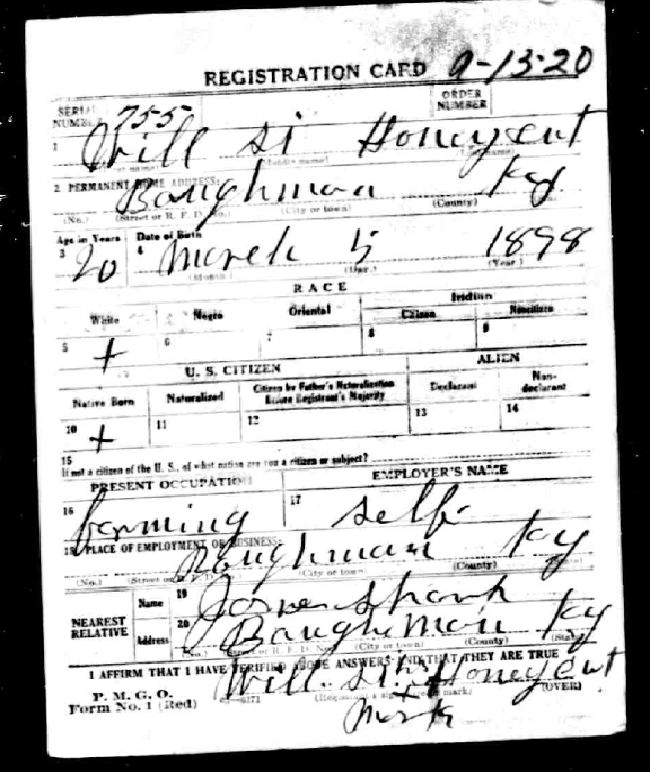 REGISTRATION CARD 9-13-20
SERIAL NUMBER 755 ORDER NUMBER
1 Will Si Honeycut
(Middle name)
2 PERMANENT HOME ADDRESS: Baughman Ky
(No.) (Street or R. F. D. No.) (City or town) (County)
Age in Years Date of Birth
3 20 4 March 5 1898
(Month) (Day.) (Year)
RACE
White Negro Oriental Indian
Citizen Noncitizen
5 + 6 7 8 9
U. S. CITIZEN ALIEN
Native Born Naturalized Citizen by Father's Naturalization Before Registrant's Majority Declarant Non-declarant
10 + 11 12 13 14
15 If not a citizen of the U. S., of what nation are you a citizen or subject?
PRESENT OCCUPATION EMPLOYER'S NAME
16 farming 17 self
18 PLACE OF EMPLOYMENT OR BUSINESS: Baughman Ky
(No.) (Street or R. F. D. No.) (City or town) (County)
NEAREST RELATIVE
Name 19
Address 20 Baughman Ky
(No.) (Street or R. F. D. No.) (City or town) (County) (State)
I AFFIRM THAT I HAVE VERIFIED ABOVE ANSWERS AND THAT THEY ARE TRUE
P. M. G. O.
Form No. 1 (Red) Will Si his Honeycut
+ mark) (OVER)
mark